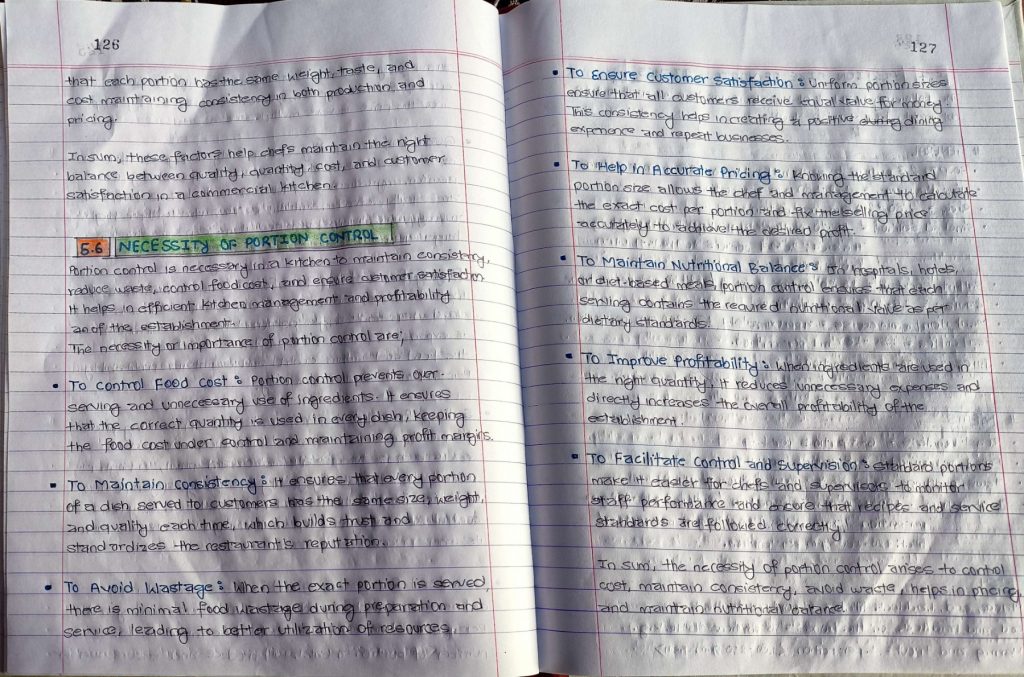 126
that each portion has the same weight, taste, and
cost maintaining consistency in both production and
pricing.
In sum, these factors help chefs maintain the right
balance between quality, quantity, cost, and customer
satisfaction in a commercial kitchen.
5.6 NECESSITY OF PORTION CONTROL
Portion control is necessary in a kitchen to maintain consistency,
reduce waste, control food cost, and ensure customer satisfaction
It helps in efficient kitchen management and profitability
of the establishment.
The necessity or importance of portion control are;
• To Control Food Cost : Portion control prevents over-
serving and unnecessary use of ingredients. It ensures
that the correct quantity is used in every dish, keeping
the food cost under control and maintaining profit margins.
• To Maintain Consistency : It ensures that every portion
of a dish served to customers has the same size, weight,
and quality each time, which builds trust and
standardizes the restaurant's reputation.
• To Avoid Wastage : When the exact portion is served,
there is minimal food wastage during preparation and
service, leading to better utilization of resources.
127
• To Ensure Customer Satisfaction : Uniform portion sizes
ensure that all customers receive equal value for money.
This consistency helps in creating a positive during dining
experience and repeat businesses.
• To Help in Accurate Pricing : Knowing the standard
portion size allows the chef and management to calculate
the exact cost per portion and fix the selling price
accurately to achieve the desired profit.
• To Maintain Nutritional Balance : In hospitals, hotels,
or diet-based meals, portion control ensures that each
serving contains the required nutritional value as per
dietary standards.
• To Improve Profitability : When ingredients are used in
the right quantity, it reduces unnecessary expenses and
directly increases the overall profitability of the
establishment.
• To Facilitate Control and Supervision : Standard portions
make it easier for chefs and supervisors to monitor
staff performance and that recipes and service
standards are followed correctly.
In sum, the necessity of portion control arises to control
cost, maintain consistency, avoid waste, helps in pricing
and maintain nutritional balance.